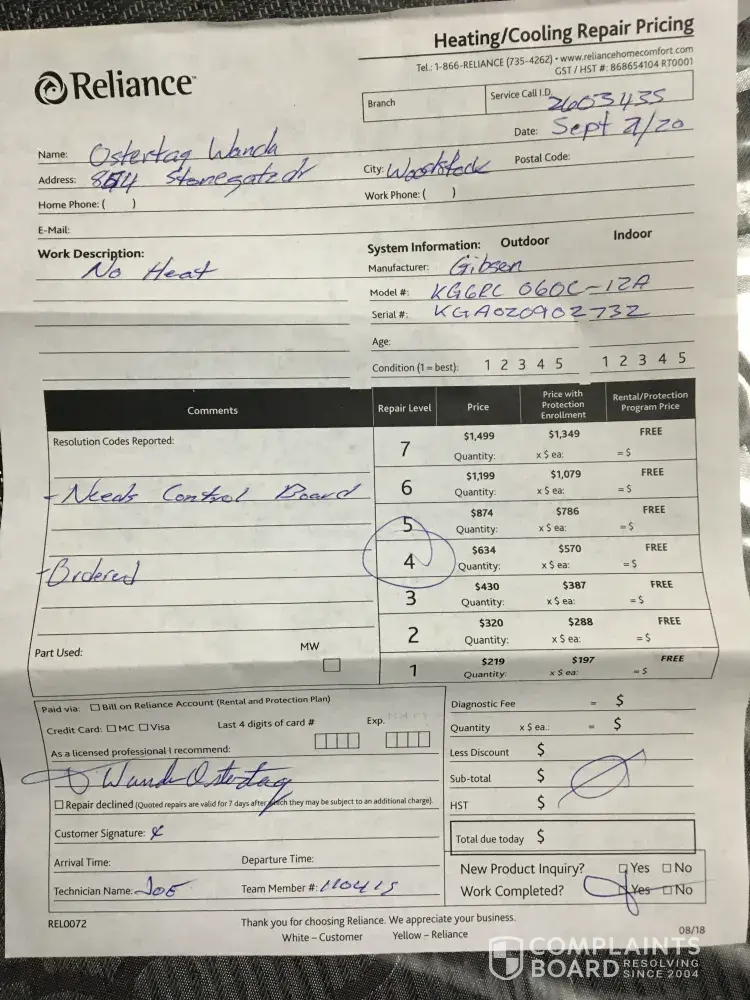 Heating/Cooling Repair Pricing
Reliance™
Tel.: 1-866-RELIANCE (735-4262) • www.reliancehomecomfort.com
GST / HST #: 868654104 RT0001
Branch
Service Call I.D. 2603435
Date: Sept 2/20
Name: Ostertag Wanda
Address: Stonegate dr City: Woodstock Postal Code:
Home Phone: ( ) Work Phone: ( )
E-Mail:
Work Description: No Heat
System Information: Outdoor Indoor
Manufacturer: Gibson
Model #: KG6RC 060C-12A
Serial #: KGA020902732
Age:
Condition (1 = best): 1 2 3 4 5 1 2 3 4 5
Comments Repair Level Price Price with Protection Enrollment Rental/Protection Program Price
Resolution Codes Reported:
- Needs Control Board
- Ordered
Part Used: MW
7 $1,499 $1,349 FREE
Quantity: x $ ea: = $
6 $1,199 $1,079 FREE
Quantity: x $ ea: = $
5 $874 $786 FREE
Quantity: x $ ea: = $
4 $634 $570 FREE
Quantity: x $ ea: = $
3 $430 $387 FREE
Quantity: x $ ea: = $
2 $320 $288 FREE
Quantity: x $ ea: = $
1 $219 $197 FREE
Quantity: x $ ea: = $
Paid via: Bill on Reliance Account (Rental and Protection Plan)
Credit Card: MC Visa Last 4 digits of card # Exp.
As a licensed professional I recommend:
Wanda Ostertag
Repair declined (Quoted repairs are valid for 7 days after which they may be subject to an additional charge).
Customer Signature: x
Arrival Time: Departure Time:
Technician Name: JOE Team Member #: 110415
Diagnostic Fee = $
Quantity x $ ea.: = $
Less Discount $
Sub-total $
HST $
Total due today $
New Product Inquiry? Yes No
Work Completed? Yes No
REL0072
Thank you for choosing Reliance. We appreciate your business.
White – Customer Yellow – Reliance
08/18
COMPLAINTS
BOARD RESOLVING SINCE 2004